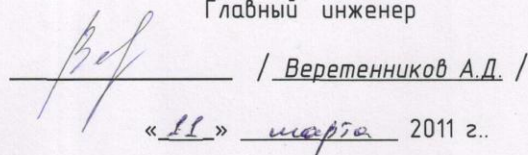 Главный инженер
/ Веретенников А.Д. /
«11» марта 2011 г..